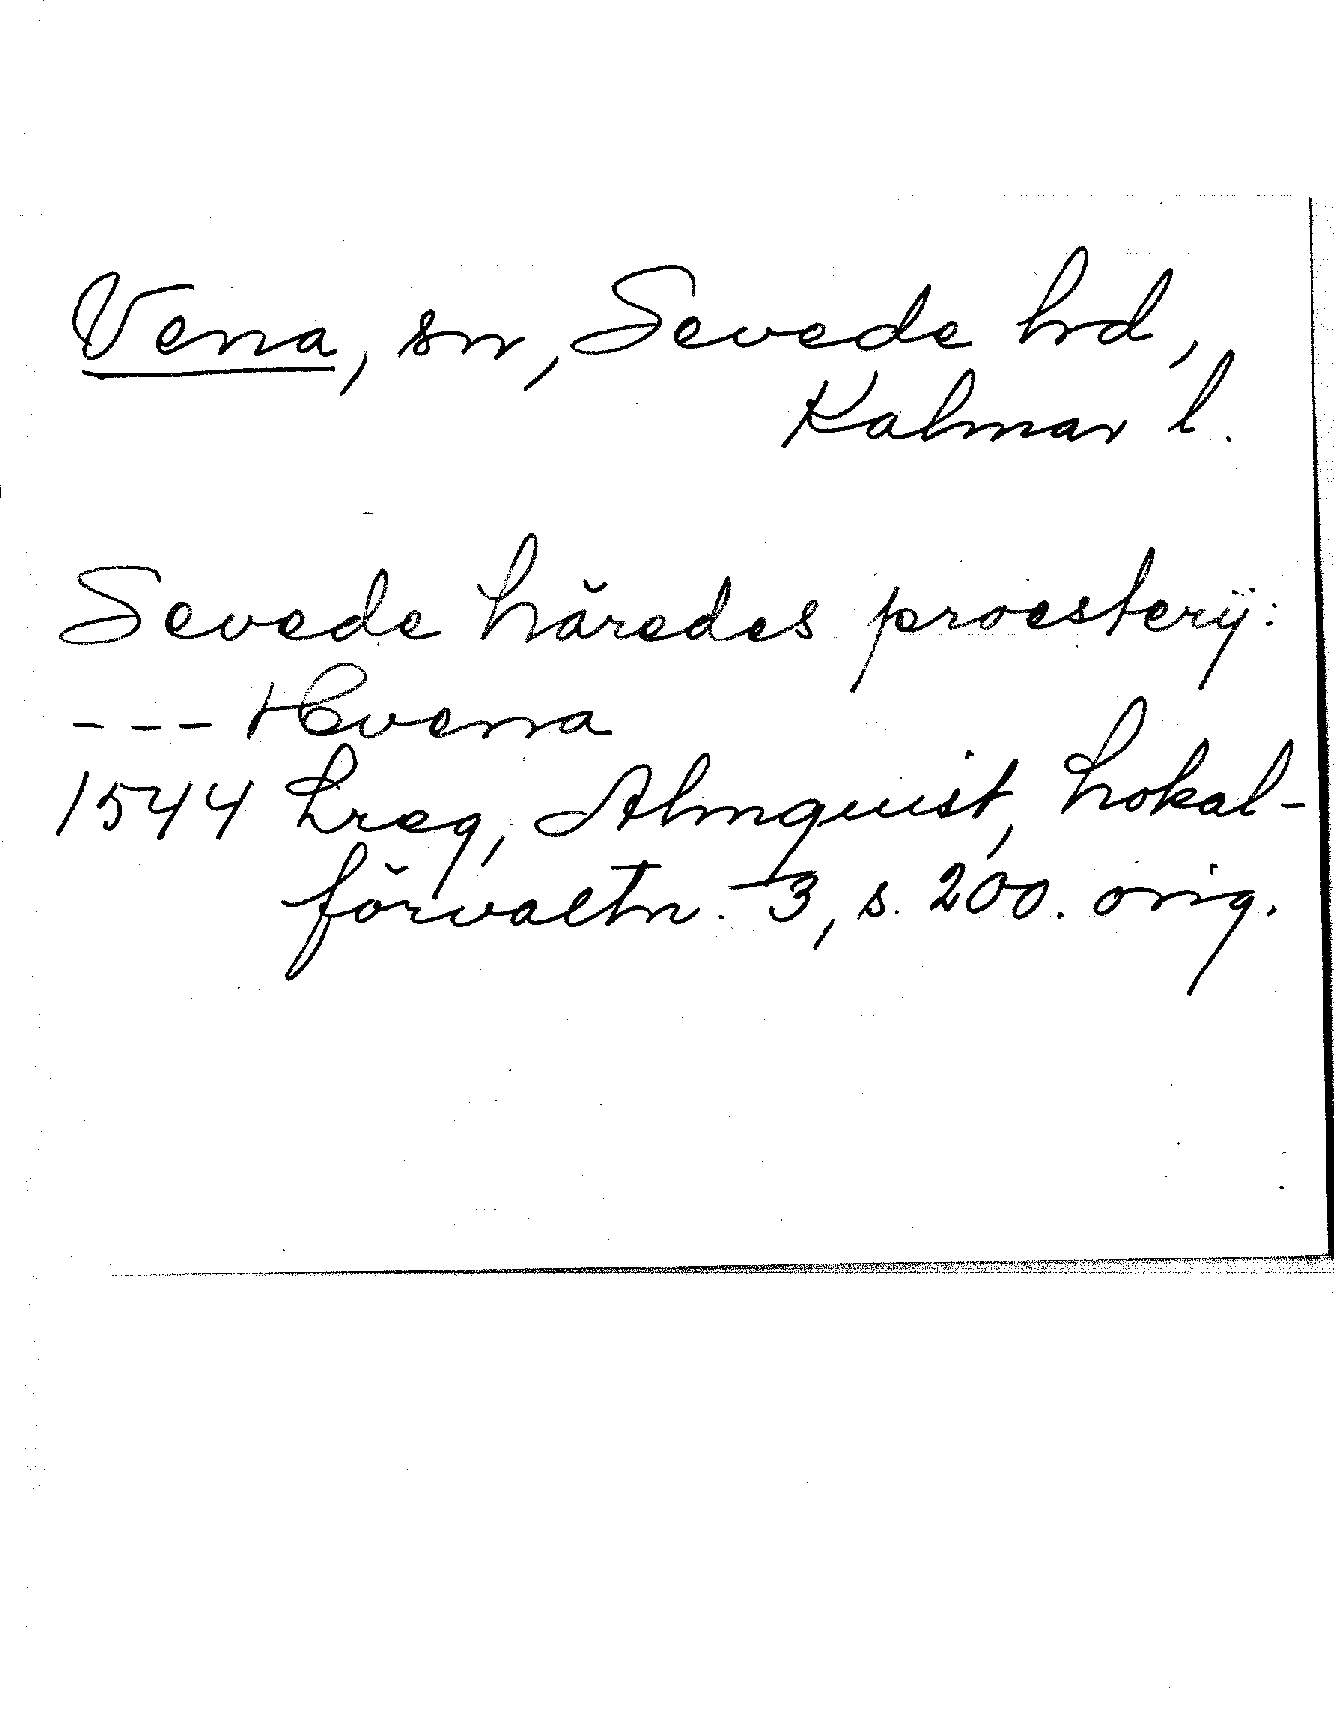 Vena, sn, Sevede hrd,
Kalmar l.
Sevede häredes proesterÿ:
--- Hvena
1544 Lreg, Almquist, Lokal-
förvaltn. 3, s. 200. orig.